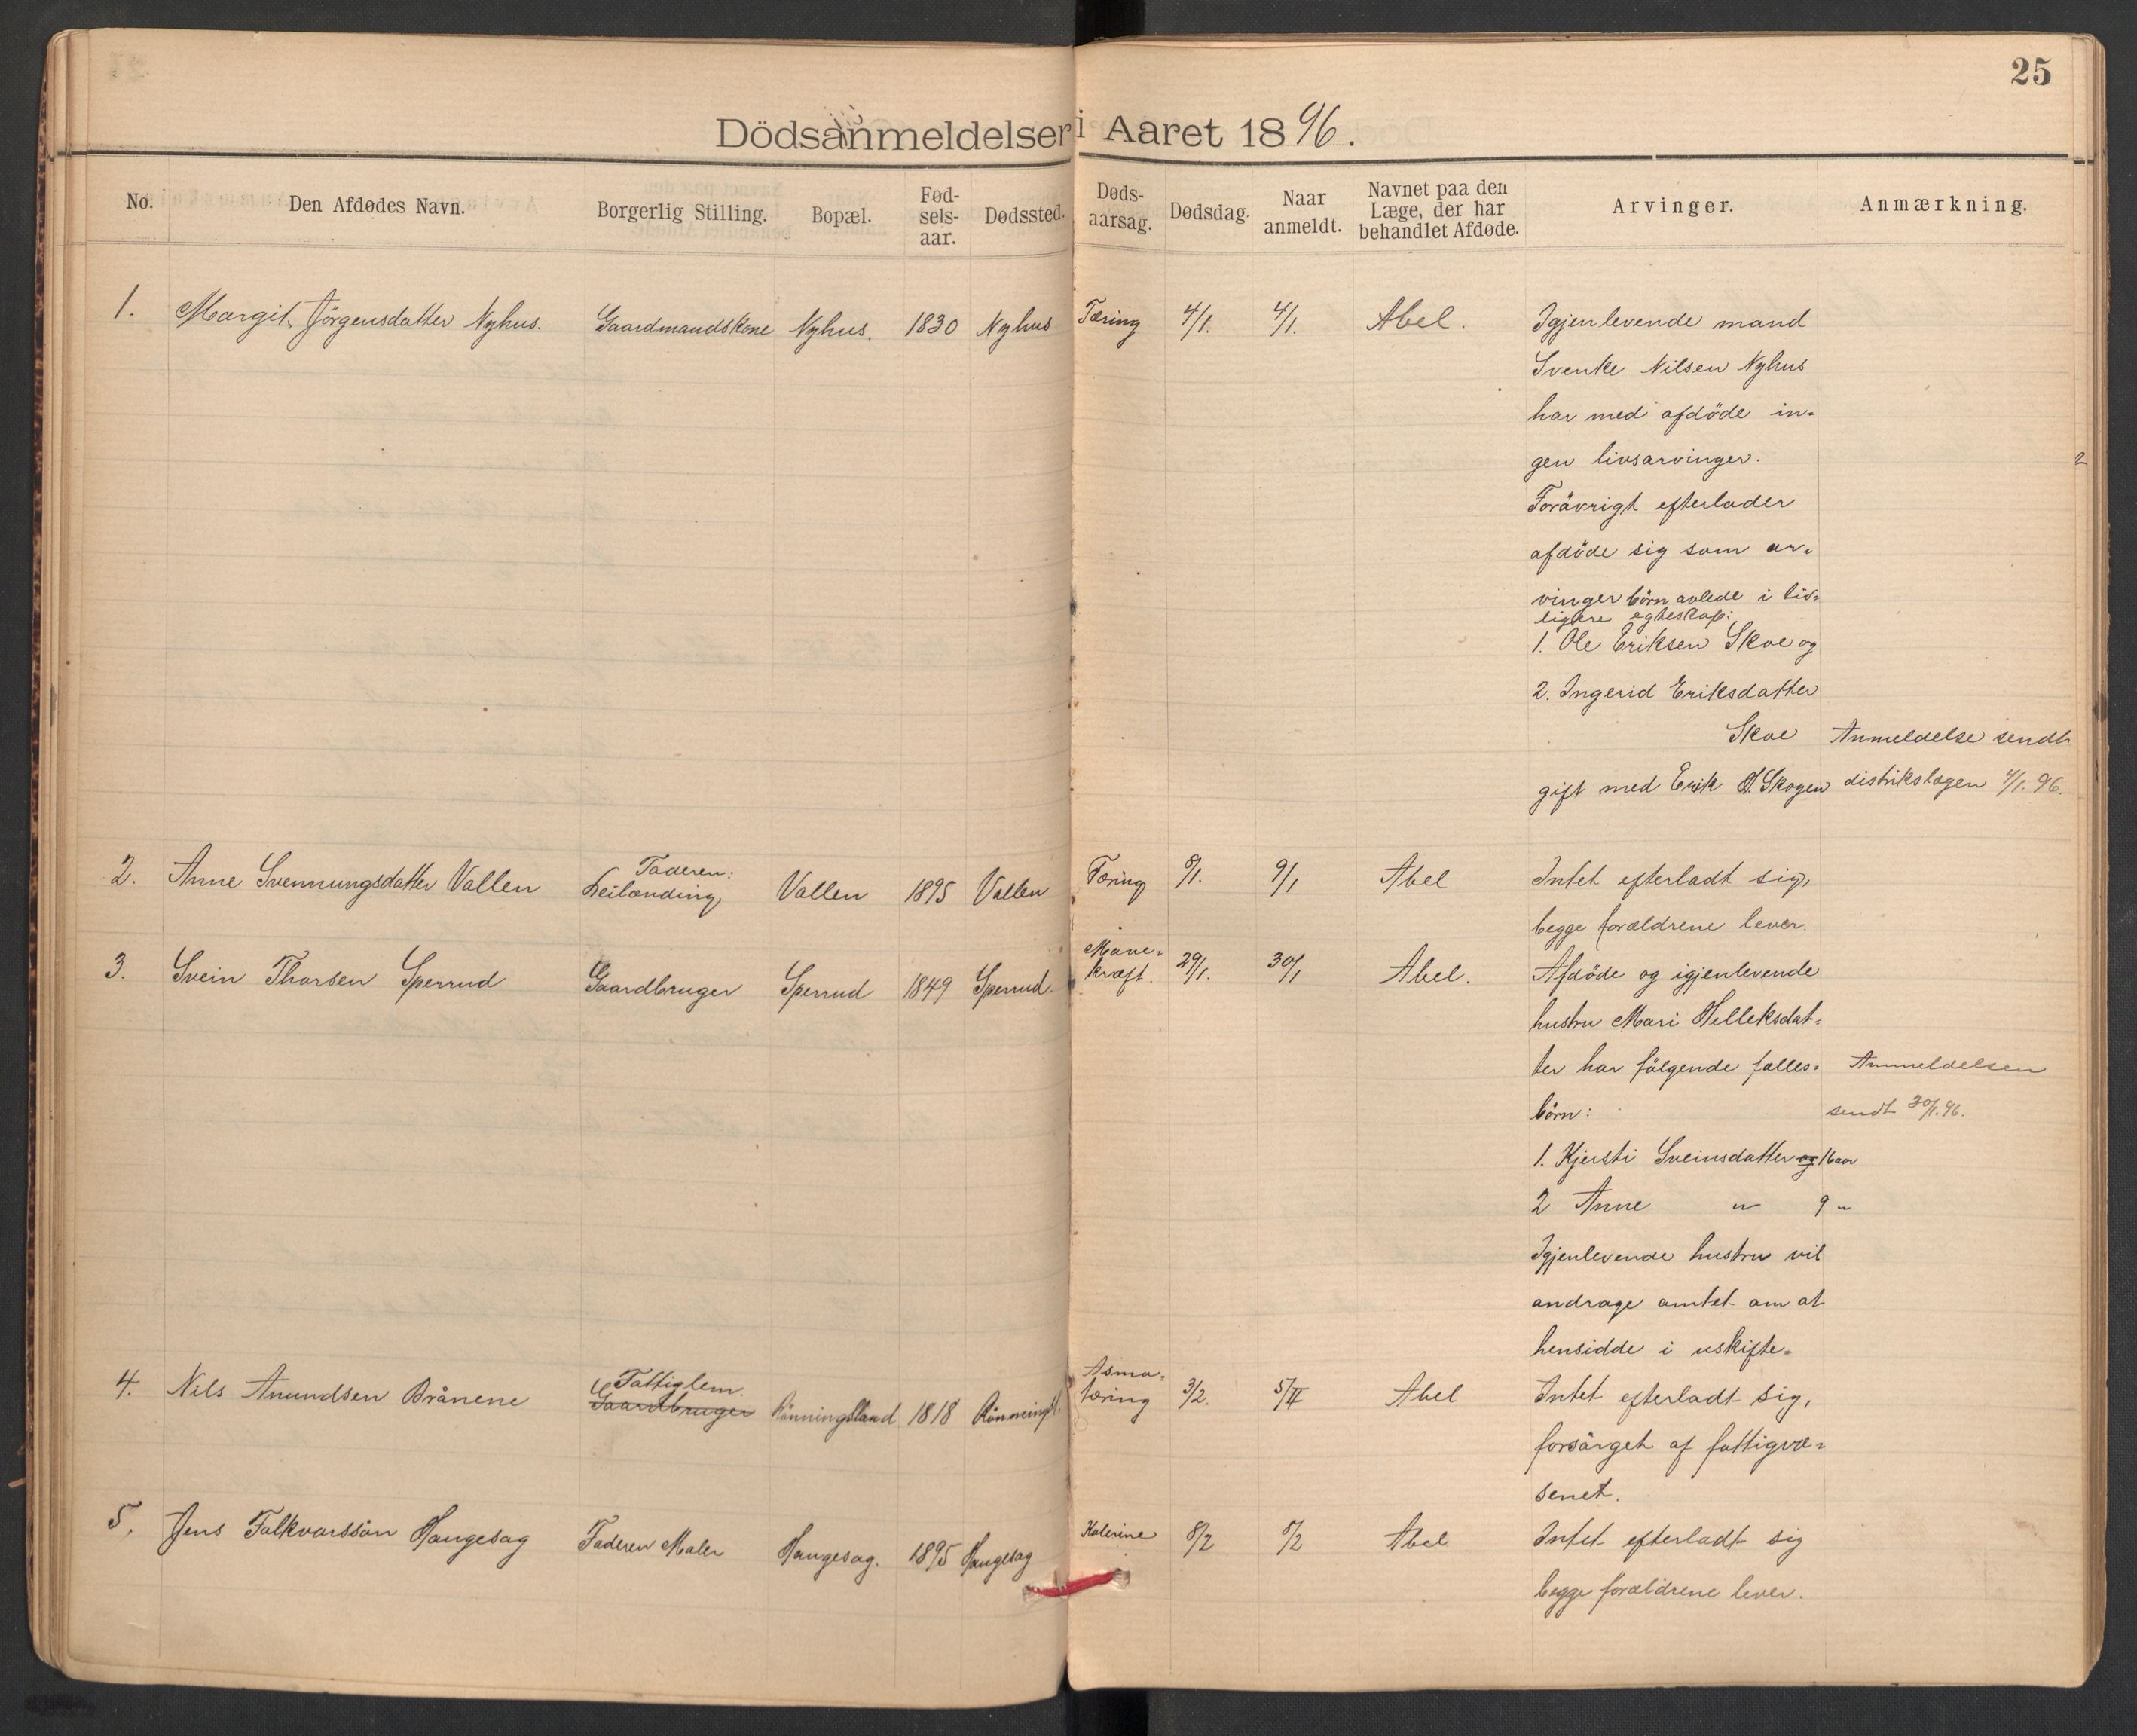 25
Dödsanmeldelser i Aaret 1896.
No. Den Afdødes Navn. Borgerlig Stilling. Bopæl. Fød-sels-aar. Dødssted. Døds-aarsag. Dødsdag. Naar anmeldt. Navnet paa den Læge, der har behandlet Afdøde. Arvinger. Anmærkning.
1. Margit Jörgensdatter Nyhus. Gaardmandskone Nyhus. 1830 Nyhus Tæring 4/1. 4/1. Abel. Igjenlevende mand
Svenke Nilsen Nyhus
har med afdöde in-
gen livsarvinger.
Forövrigt efterlader
afdöde sig som ar-
vinger börn avlede i tid-
ligere egteskap:
1. Ole Eriksen Skoe og
2. Ingerid Eriksdatter
Skoe Anmeldelse sendt
gift med Erik O. Skogen distrikslægen 4/1. 96.
2. Anne Svennungsdatter Vallen Faderen: Leilænding Vallen 1895 Vallen Tæring 9/1 Abel Intet efterladt sig,
begge forældrene lever.
3. Svein Thorsen Sperrud Gaardbruger Sperrud 1849 Sperrud. Mave-kræft. 29/1. 30/1 Abel. Afdöde og igjenlevende
hustru Mari Helleksdat-
ter har fölgende fælles- Anmeldelsen
börn: sendt 30/1. 96.
1. Kjersti Sveinsdatter og 16 aar
2 Anne " 9 "
Igjenlevende hustru vil
andrage amtet om at
hensidde i uskifte.
4. Nils Amundsen Brånene Fattiglem. Gaardbruger Rönningsland 1818 Asma-tæring 3/2. 5/II Abel Intet efterladt sig,
forsörget af fattigvæ-
senet.
5. Jens Folkvarssön Haugesag Faderen Maler Haugesag. 1895 Haugesag Katerine 8/2 8/2 Abel Intet efterladt sig
begge forældrene lever.